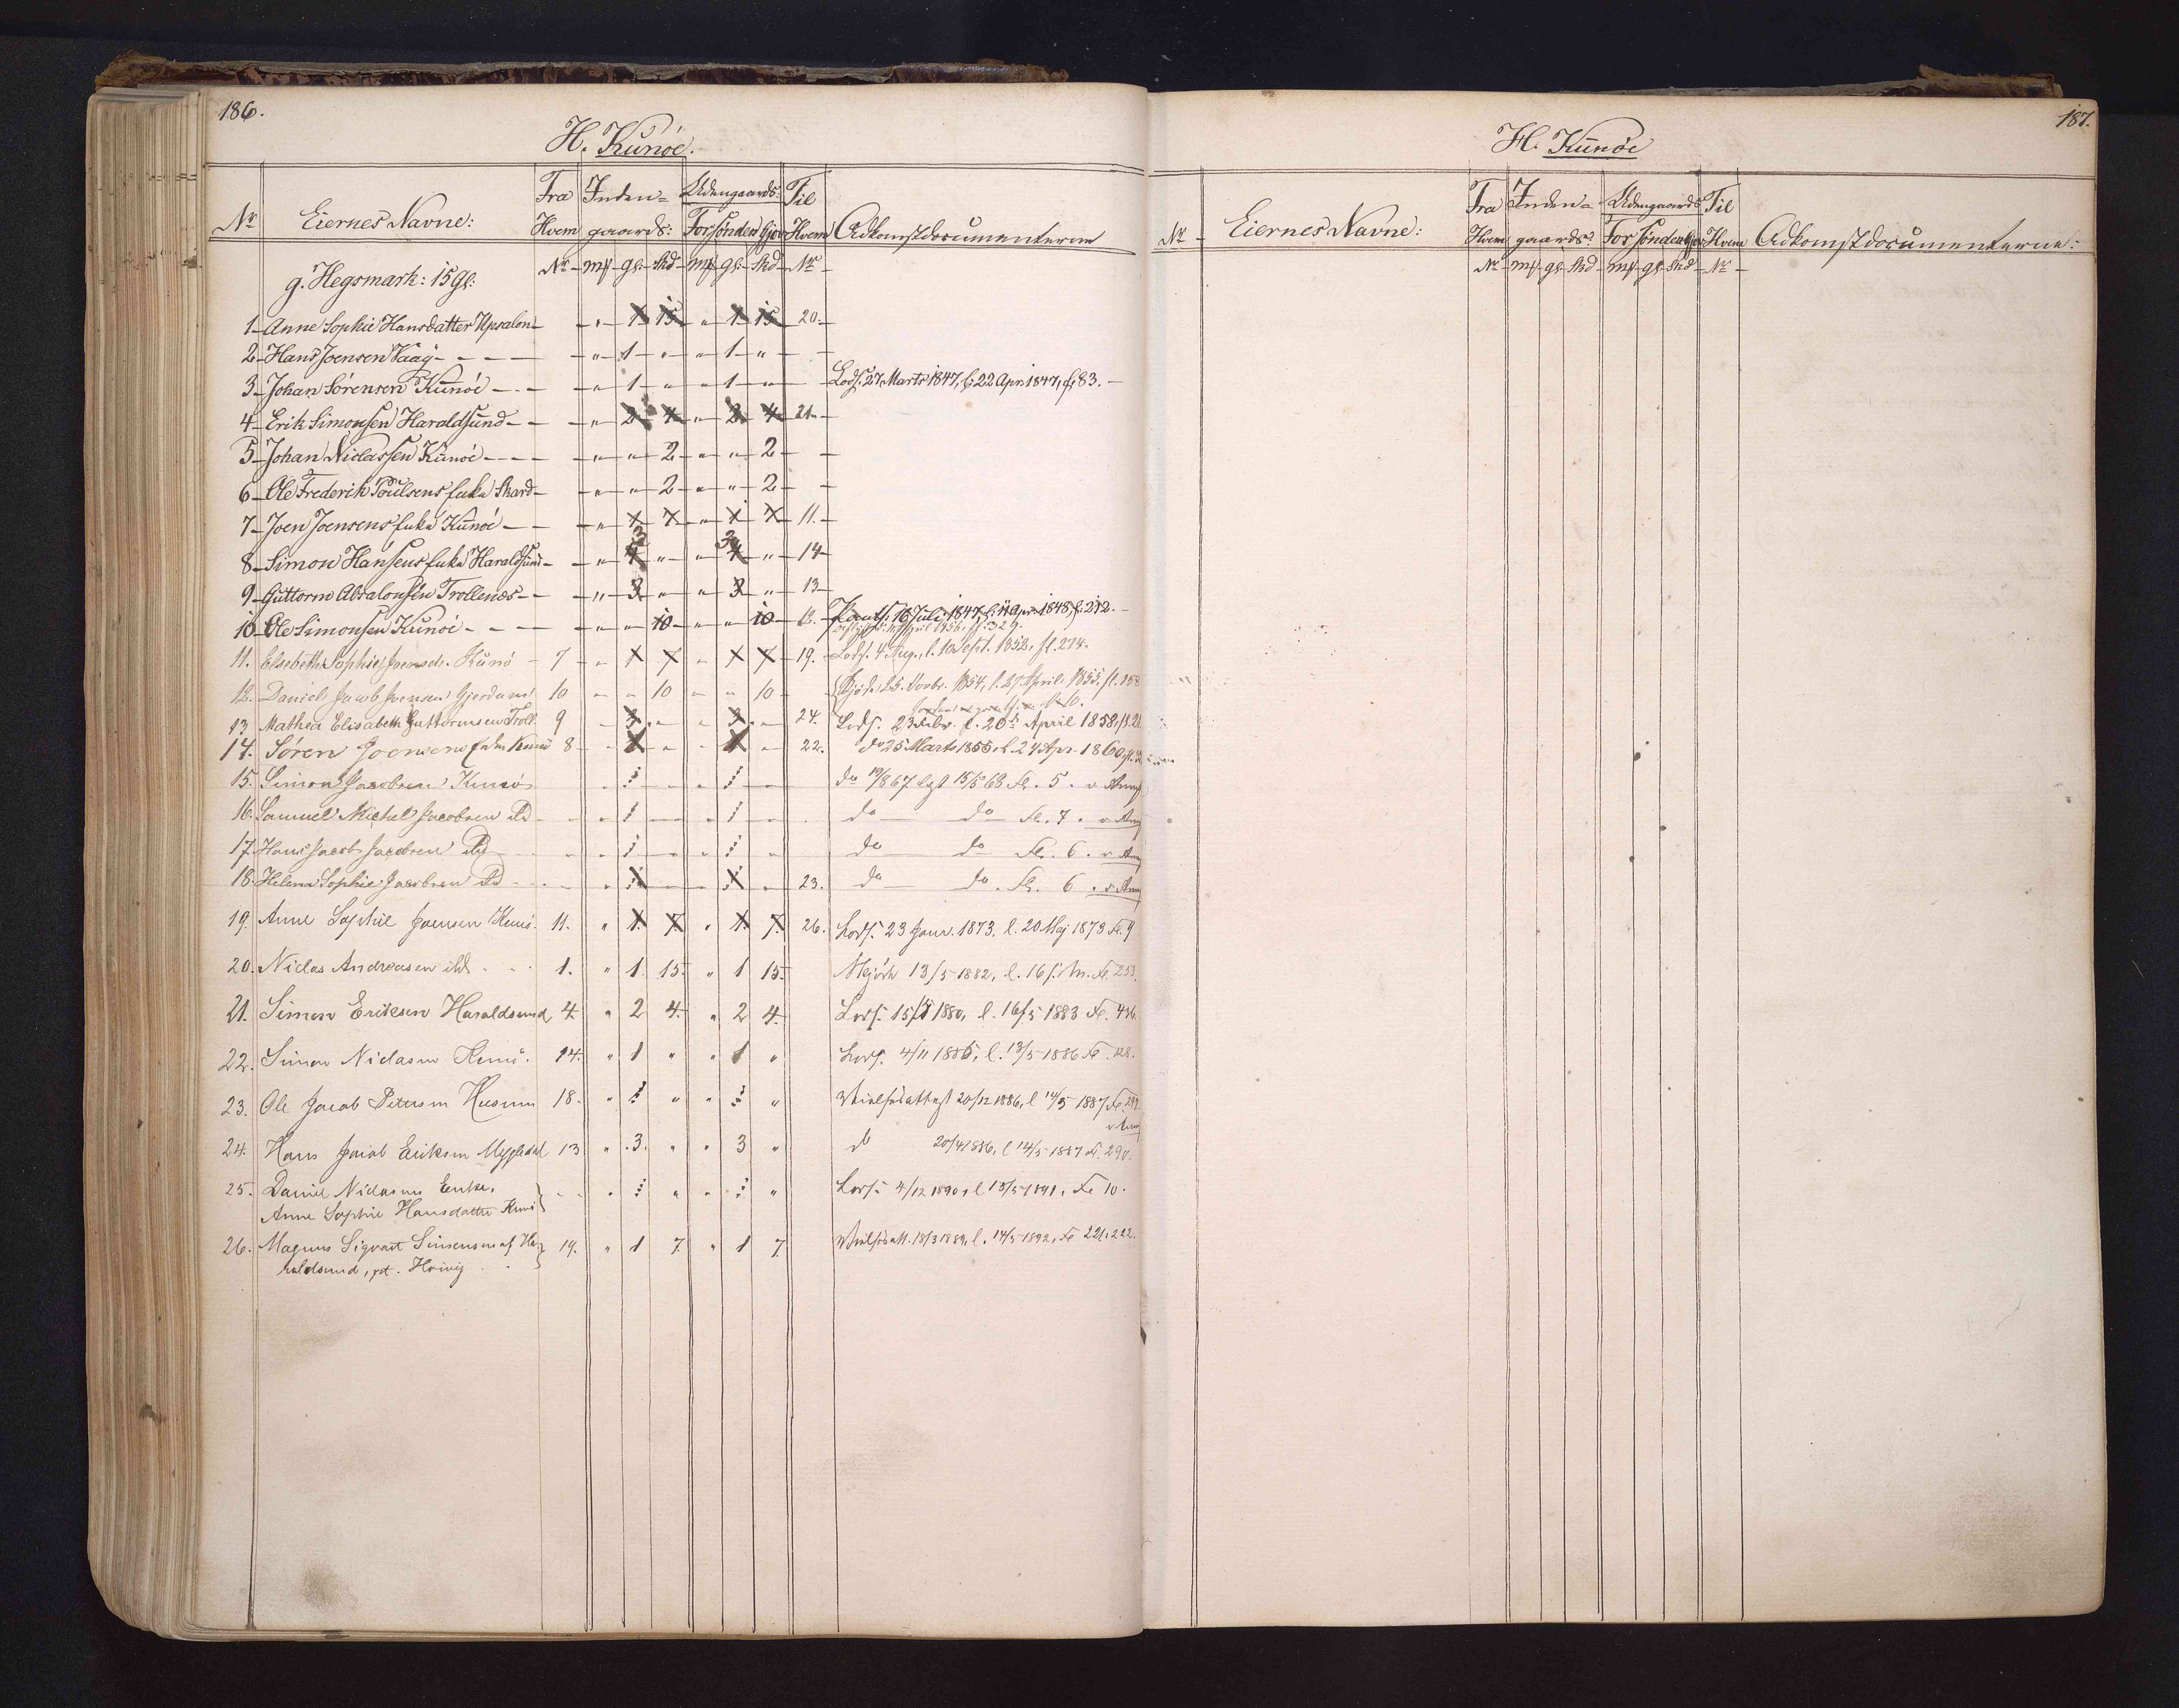 186.
H. Kunöe.
Nr Eiernes Navne: Fra Hvem Inden= gaards: Udengaards: For sönden Gjov Til Hvem Adkomstdocumenterne
g. Hegsmark: 15 Gl: Nr mk gl: skd mk gl: skd Nr
1 Anne Sophie Hansdatter Upsalon " 1 15 " 1 15 20.
2 Hans Joensen Vaag " 1 " " 1 "
3 Johan Sörensen Kunöe " 1 " " 1 " Lods: 27 Marts 1847, l: 22 Apr 1847, f. 83.
4 Erik Simonsen Haraldsund " 2 4 " 2 4 21
5 Johan Niclassen Kunöe " " 2 " " 2
6 Ole Frederik Poulsens Enke Skard " " 2 " " 2
7 Joen Joensens Enke Kunöe " 1 7 " 1 7 11.
3 3
8 Simon Hansens Enke Haraldsund " 4 " " 4 " 14
9 Guttorm Absalonsen Trollenæs " 3 " " 3 " 13
10 Ole Simonsen Kunöe " " 10 " " 10 12. 16 Juli 1847, l: 11 Apr 1848, f: 212.
11. Elsebeth Sophie Joensdr. Kunö 7 " 1 7 " 1 7 19. Lods. 4 Aug., l. 10 Sept. 1852, fl. 274.
12. Daniel Jacob Joensen Gjerdum 10 " " 10 " " 10 Skjöde 25. Novbr. 1854, l. 27. April 1855, fl. 158
13 Mathea Elisabeth Guttormsen Troll. 9 3 " " 3 " 24. Lods. 23 Febr. l. 20de April 1858, fl. 21
14. Sören Joensens Enke Kunö 8 1 " " 1 " 22. do 25 Marts 1855, l. 24 Apr. 1860, fl.
15. Simon Jacobsen Kunö 1 1 do 19/8 67 lgst 15/5 68 Fl. 5. v Anm
16. Samuel Michel Jacobsen Do 1 1 do do Fl. 7. v Anm
17. Hans Jacob Jacobsen Do 1 1 do do Fl. 6. v Anm
18. Helena Sophie Jacobsen Do 1 1 23. do do Fl. 6. v Anm
19. Anne Sophie Joensen Kunö. 11. " 1. 7. " 1. 7. 26. Lods. 23 Janr. 1873, l. 20 Maj 1873 Fl. 9
20. Niclas Andreasen ibd. 1. " 1. 15. " 1 15. Skjöde 13/5 1882, l. 16 s. M. Fl. 233.
21. Simon Eriksen Haraldsund 4. " 2 4. " 2 4. Lods. 15/5 1880, l. 16/5 1883 Fl. 436.
22. Simon Niclasen Kunö. 14. " 1 " " 1 " Lods. 4/11 1885, l. 13/5 1886 Fl. 128.
23. Ole Jacob Petersen Husum 18. " 1 " " 1 " Vielsesattest 20/12 1886, l 14/5 1887 Fl. 292
v Anm
24. Hans Jacob Eriksen Mygledal 13 " 3. " " 3 " do 20/4 1886, l 14/5 1887 Fl. 290.
25. Daniel Niclasens Enke, " " " " Lods. 4/12 1890, l 13/5 1891, Fl. 10.
Anne Sophie Hansdatter Kunö
26. Magnus Sigvart Simonsen af Ha= 19. " 1 7. " 1 7. Vielsesatt. 18/3 1889, l. 14/5 1892, Fl 221, 222.
raldsund, pt. Hvivig
187.
H. Kunöe
Nr Eiernes Navne: Fra Hvem Inden= gaards: Udengaards For sönden Gjov Til Hvem Adkomstdocumenterne:
Nr mk gl. skd mk gl. skd Nr